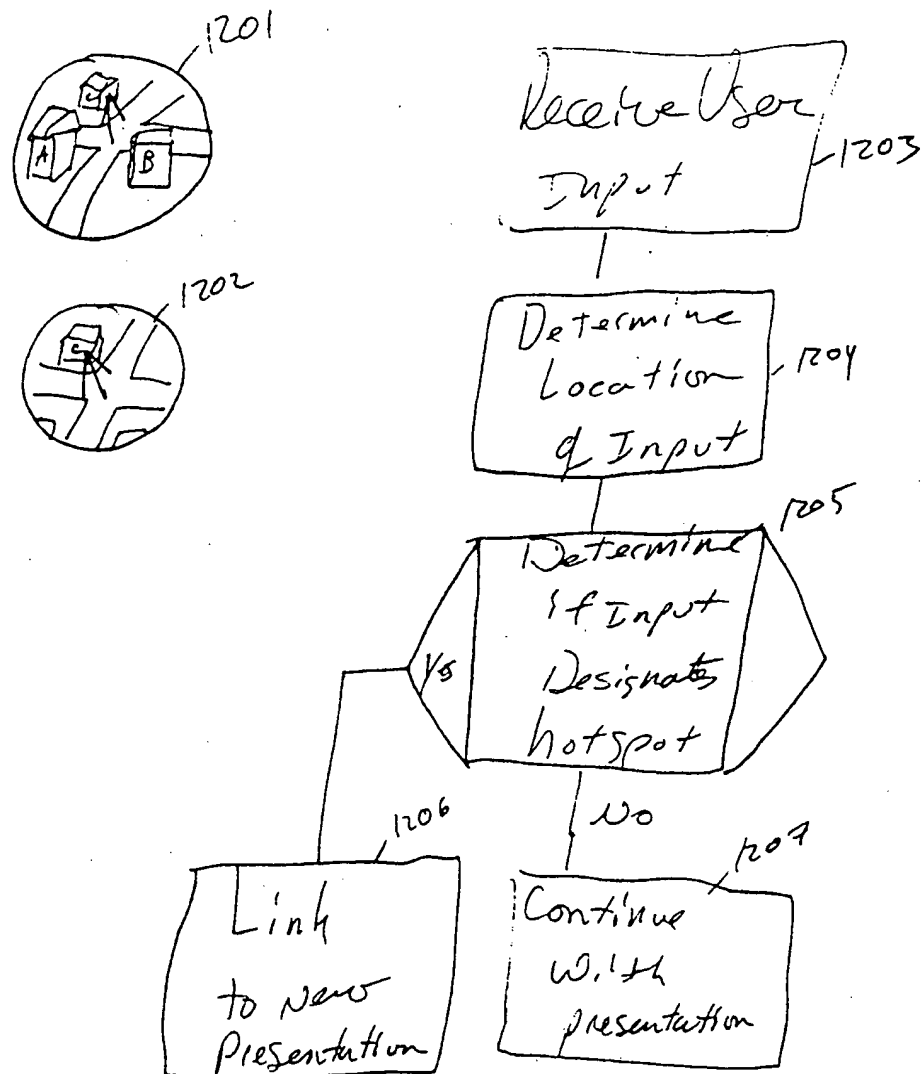 1201
C
A
B
1202
C
Receive User
Input
1203
Determine
Location
of Input
1204
1205
Determine
if Input
Designates
hotspot
Yes
No
1206
Link
to New
Presentation
1207
Continue
With
presentation